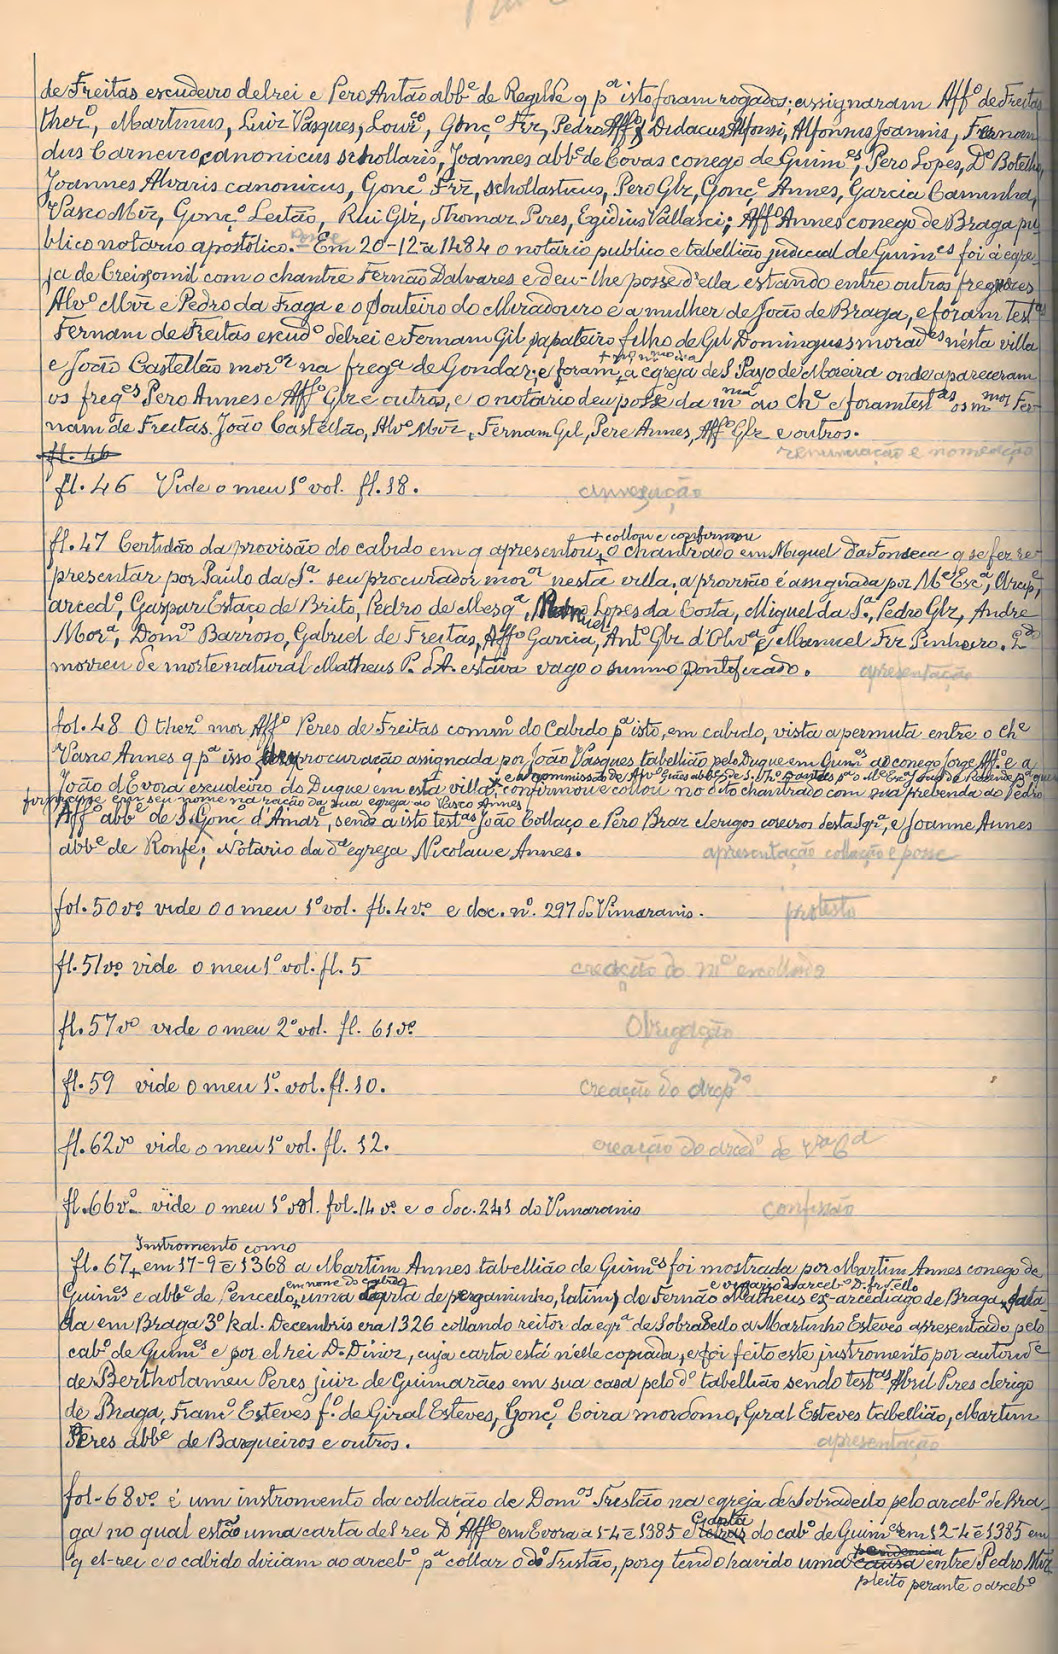 de Freitas escudeiro delrei e Pero Antão abb.e de Regilde q p.a isto foram rogados; assignaram Aff.o de Freitas
thez.o, Martinus, Luiz Vasques, Lour.ço, Gonç.o Frz, Pedro Aff.o, Didacus Alfonsi, Alfonsus Joannis, Fernan
dus Carneiro, canonicus schollaris, Joannes abb.e de Covas conego de Guim.es, Pero Lopes, D.o Botelho,
Joannes Alvaris canonicus, Gonç.o Frz, schollasticus, Pero Glz, Gonç.e Annes, Garcia Caminha,
Vasco Miz, Gonç.o Leitão, Rui Glz, Thomaz Pires, Egidius Vallasci; Aff.o Annes conego de Braga pu
blico notario apostolico. — Em 20-12-ª 1484 o notario publico e tabellião judicial de Guim.es foi á egre
ja de Creixomil com o chantre Fernão Dalvares e deu-lhe posse d'ella estando entre outros freguezes
Alv.o Miz e Pedro da Fraga e o Couteiro do Miradouro e a mulher de João de Braga, e foram test.as
Fernam de Freitas escud.o delrei e Fernam Gil sapateiro filho de Gil Domingues morad.es n'esta villa
e João Castellão mor.or na freg.a de Gondar; e foram + á egreja de S Payo de Moreira onde apareceram
+ no mesmo dia
os freg.es Pero Annes e Aff.o Glz e outros, e o notario deu posse da m.ma ao Ch.e e foram test.as os m.mos Fer
nam de Freitas. João Castellão, Alv.o Miz, Fernam Gil, Pere Annes, Aff.o Glz e outros.
renunciação e nomeação
fl. 46
fl. 46 Vide o meu 1º vol. fl. 18.
fl. 47 Certidão da provisão do cabido em q apresentou + o chantrado em Miguel da Fonseca q se fez re-
+ collou e confirmou
presentar por Paulo da S.a seu procurador mor.or nesta villa; a provisão é assignada por M.el Esc.a, Arcip.e,
arced.o, Gaspar Estaço de Brito, Pedro de Mesq.a, Manuel Lopes da Costa, Miguel da S.a, Pedro Glz, Andre
Mor.a, Dom.os Barroso, Gabriel de Freitas, Aff.o Garcia, Ant.o Glz d'Oliv.a e Manuel Frz Pinheiro. Q.do
morreu de morte natural Matheus P. d'A. estava vago o summo pontificado.
apresentação
fol. 48 O thez.o mor Aff.o Peres de Freitas comm.o do Cabido p.a isto, em cabido, vista a permuta entre o Ch.e
Vasco Annes q p.a isso deu procuração assignada por João Vasques tabellião pelo Duque em Guim.es ao conego Jorge Aff.o e a
João d'Evora escudeiro do Duque em esta villa, confirmou e collou no dito chantrado com sua prebenda ao Pedro
Aff.o abb.e de S. Gonç.o d'Amar.e, sendo a isto test.as João Collaço e Pero Braz clerigos coreiros desta Igr.a, e Joanne Annes
abb.e de Ronfe; Notario da d.a egreja Nicolau e Annes.
apresentação collação e posse
fol. 50 vº vide o o meu 1º vol. fl. 4 vº e doc. nº. 297 do Vimaranis.
protesto
fl. 51 vº vide o meu 1º vol. fl. 5
creação do m.o escollado
fl. 57 vº vide o meu 2º vol. fl. 61 vº
Obrigação
fl. 59 vide o meu 1º. vol. fl. 10.
creação do arcip.do
fl. 62 vº vide o meu 1º vol. fl. 12.
creação do arced.o de V.a C.d
fl. 66 vº vide o meu 1º vol. fol. 14 vº e o doc. 241 do Vimaranis
confissão
Instromento como
fl. 67 + em 17-9-ª 1368 a Martim Annes tabellião de Guim.es foi mostrada por Martim Annes conego de
Guim.es e abb.e de Pencelo, + uma carta de pergaminho, latim, do Fernão Matheus ex-arcediago de Braga, data
em nome do cabido
e vigario d'arceb.o D. fr. Tello
da em Braga 3º kal. Decembris era 1326 collando reitor da egr.a de Sobradello a Martinho Esteves apresentado pelo
cab.o de Guim.es e por el rei D. Diniz, cuja carta está n'elle copiada, e foi feito este instromento por autorid.e
de Bertholameu Peres juiz de Guimarães em sua casa pelo d.o tabellião sendo test.as Abril Pires clerigo
de Braga, Fran.o Esteves f.o de Giral Esteves, Gonç.o Coira mordomo, Giral Esteves tabellião, Martim
Peres abb.e de Barqueiros e outros.
apresentação
fol. 68 vº é um instromento da collação de Dom.os Tristão na egreja de Sobradello pelo arceb.o de Bra
ga no qual estão uma carta del rei D. Aff.o em Evora a 1-4-ª 1385 e carta do cab.o de Guim.es em 12-4-ª 1385 em
q el-rei e o cabido diziam ao arceb.o p.a collar o d.o Tristão, porq tendo havido uma causa entre Pedro Miz
pendencia
pleito perante o arceb.o